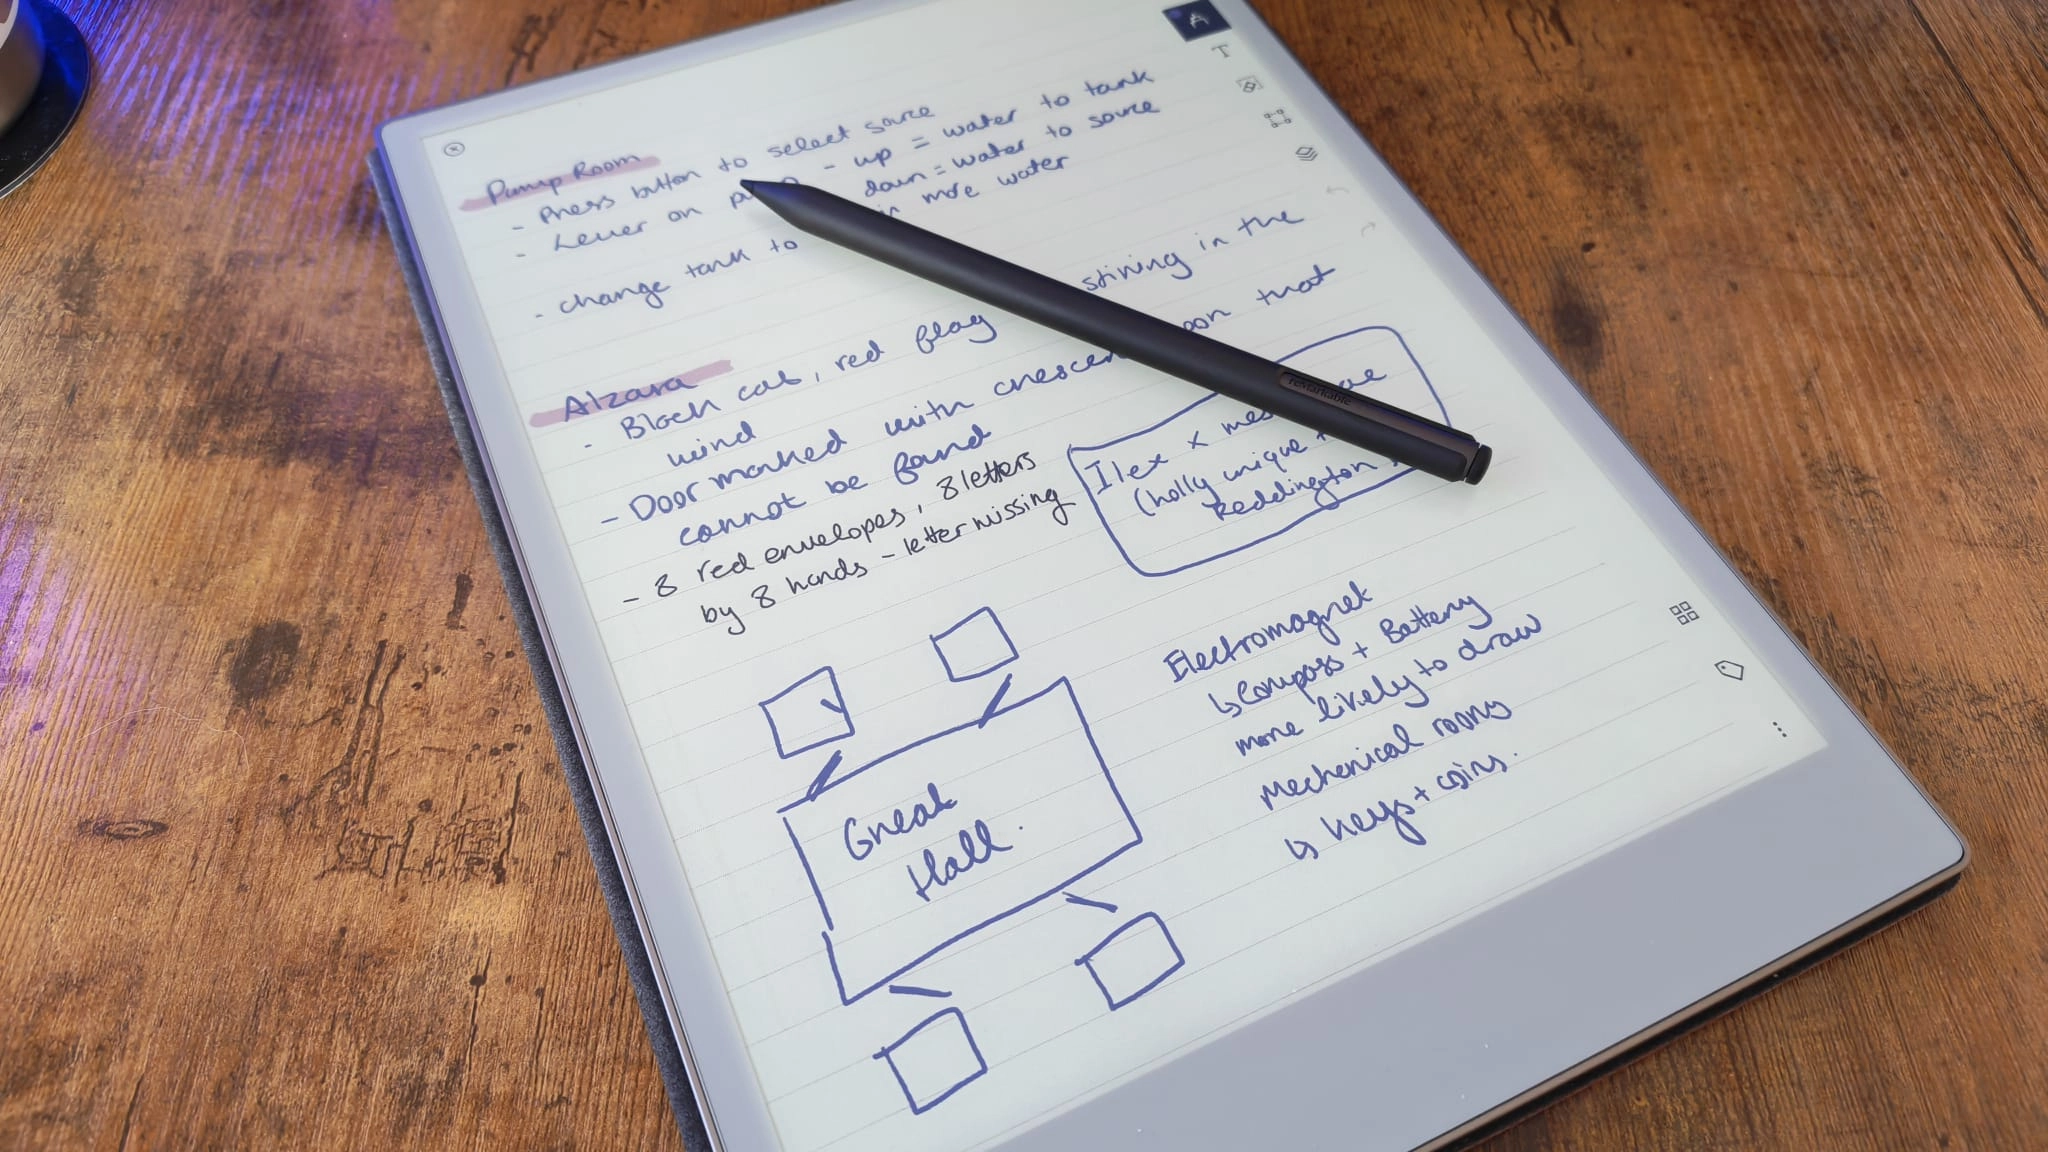 Pump Room
- Press button to select source
- Lever on - up = water to tank
down = water to source
- change tank to in more water
Alzara
- Black cat, red flag stirring in the
wind
- Door marked with crescent that
cannot be found
- 8 red envelopes, 8 letters
by 8 hands - letter missing
Ilex x
(holly unique +
Reddington
reMarkable
Electromagnet
↳ Compass + Battery
more likely to draw
Mechanical rooms
↳ keys + coins.
Great
Hall.
T